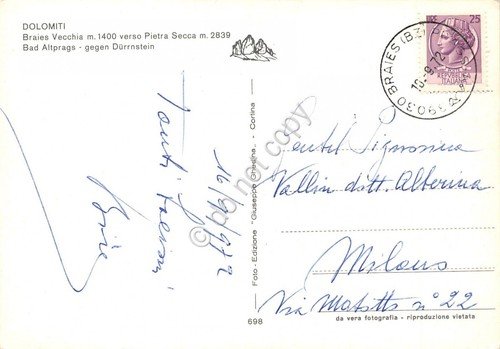 DOLOMITI
Braies Vecchia m. 1400 verso Pietra Secca m. 2839
Bad Altprags - gegen Dürrnstein
25
REPUBBLICA
ITALIANA
39030 BRAIES (BZ)
15.9.72
16/9/972
Tanti
Foto - Edizione "Giuseppe Ghedina" - Cortina
© do not copy
Gentil Signorina
Vallin dott. Albertina
Milano
Via n° 22
698
da vera fotografia - riproduzione vietata